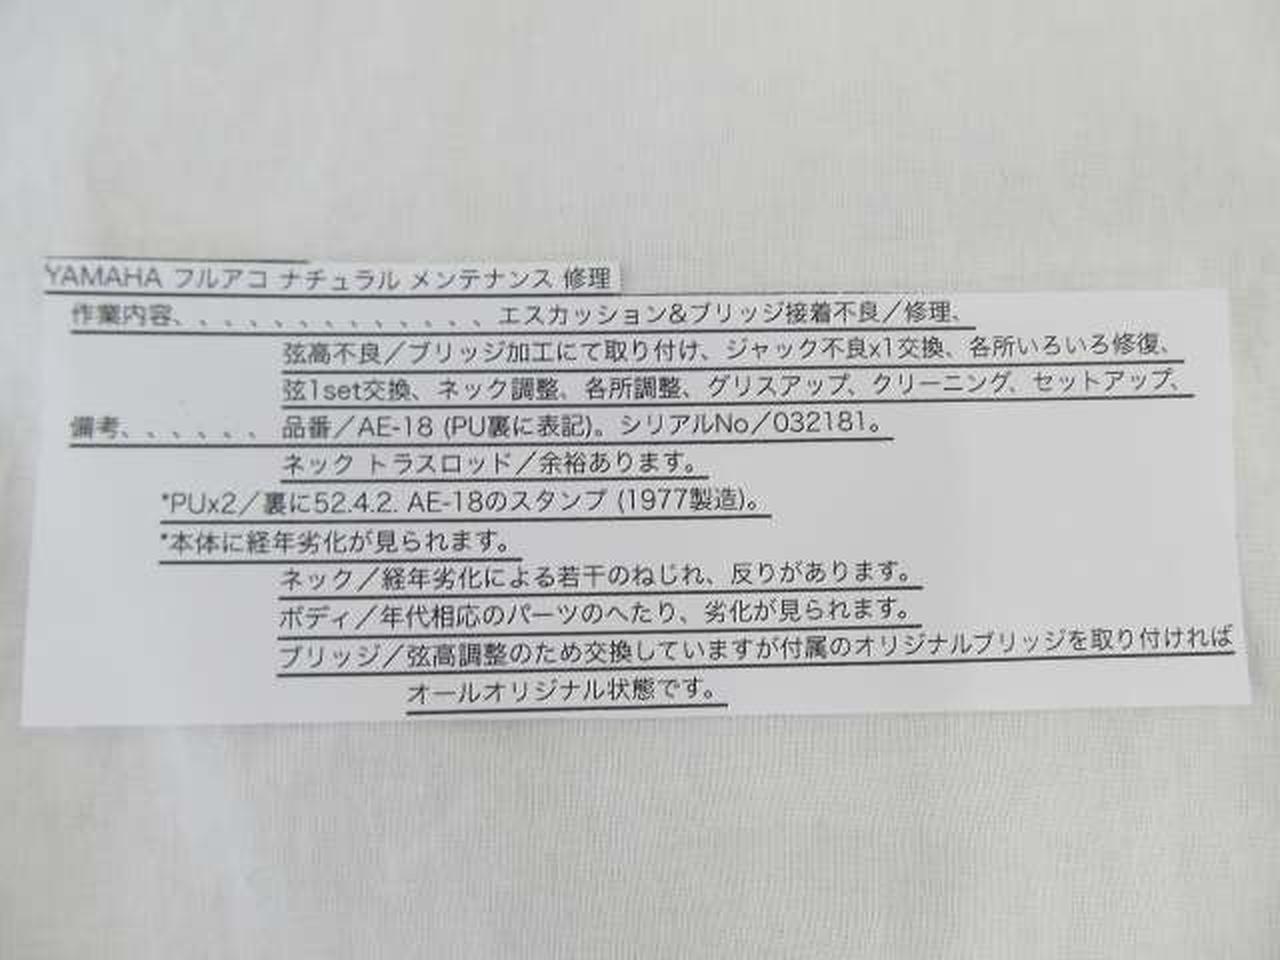 YAMAHA フルアコ ナチュラル メンテナンス 修理
作業内容、、、、、、、、、、、、、エスカッション&ブリッジ接着不良／修理、
弦高不良／ブリッジ加工にて取り付け、ジャック不良x1交換、各所いろいろ修復、
弦1set交換、ネック調整、各所調整、グリスアップ、クリーニング、セットアップ、
備考、、、、、、 品番／AE-18 (PU裏に表記)。シリアルNo／032181。
ネック トラスロッド／余裕あります。
*PUx2／裏に52.4.2. AE-18のスタンプ (1977製造)。
*本体に経年劣化が見られます。
ネック／経年劣化による若干のねじれ、反りがあります。
ボディ／年代相応のパーツのへたり、劣化が見られます。
ブリッジ／弦高調整のため交換していますが付属のオリジナルブリッジを取り付ければ
オールオリジナル状態です。